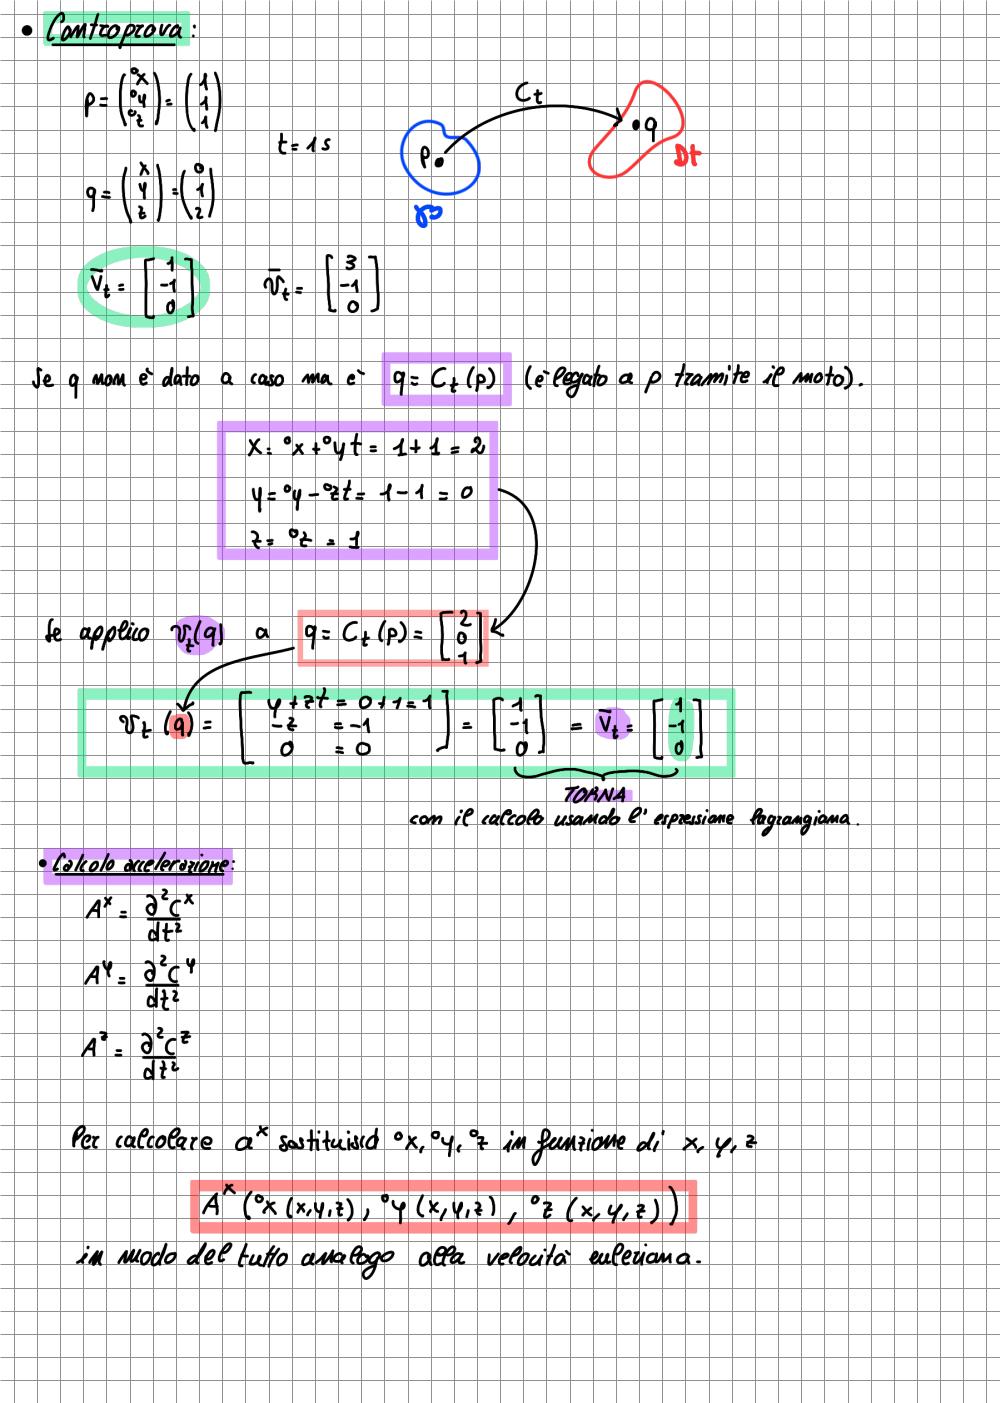 • Controprova:
p = (°x °y °z) = (1 1 1)
t = 1 s
q = (x y z) = (0 1 2)
Ct
p
q
Dt
V̄t = [1 -1 0]
v̄t = [3 -1 0]
Se q non è dato a caso ma è q = Ct (p) (è legato a p tramite il moto).
x = °x + °y t = 1 + 1 = 2
y = °y - °z t = 1 - 1 = 0
z = °z = 1
Se applico vt(q) a q = Ct (p) = [2 0 1]
vt (q) = [y + zt = 0 + 1 = 1 -z = -1 0 = 0] = [1 -1 0] = V̄t = [1 -1 0]
TORNA
con il calcolo usando l'espressione lagrangiana.
• Calcolo accelerazione:
Aˣ = ∂²Cˣ/dt²
Aʸ = ∂²Cʸ/dt²
Aᶻ = ∂²Cᶻ/dt²
Per calcolare aˣ sostituisco °x, °y, °z in funzione di x, y, z
Aˣ (°x (x,y,z), °y (x,y,z), °z (x,y,z))
in modo del tutto analogo alla velocità euleriana.